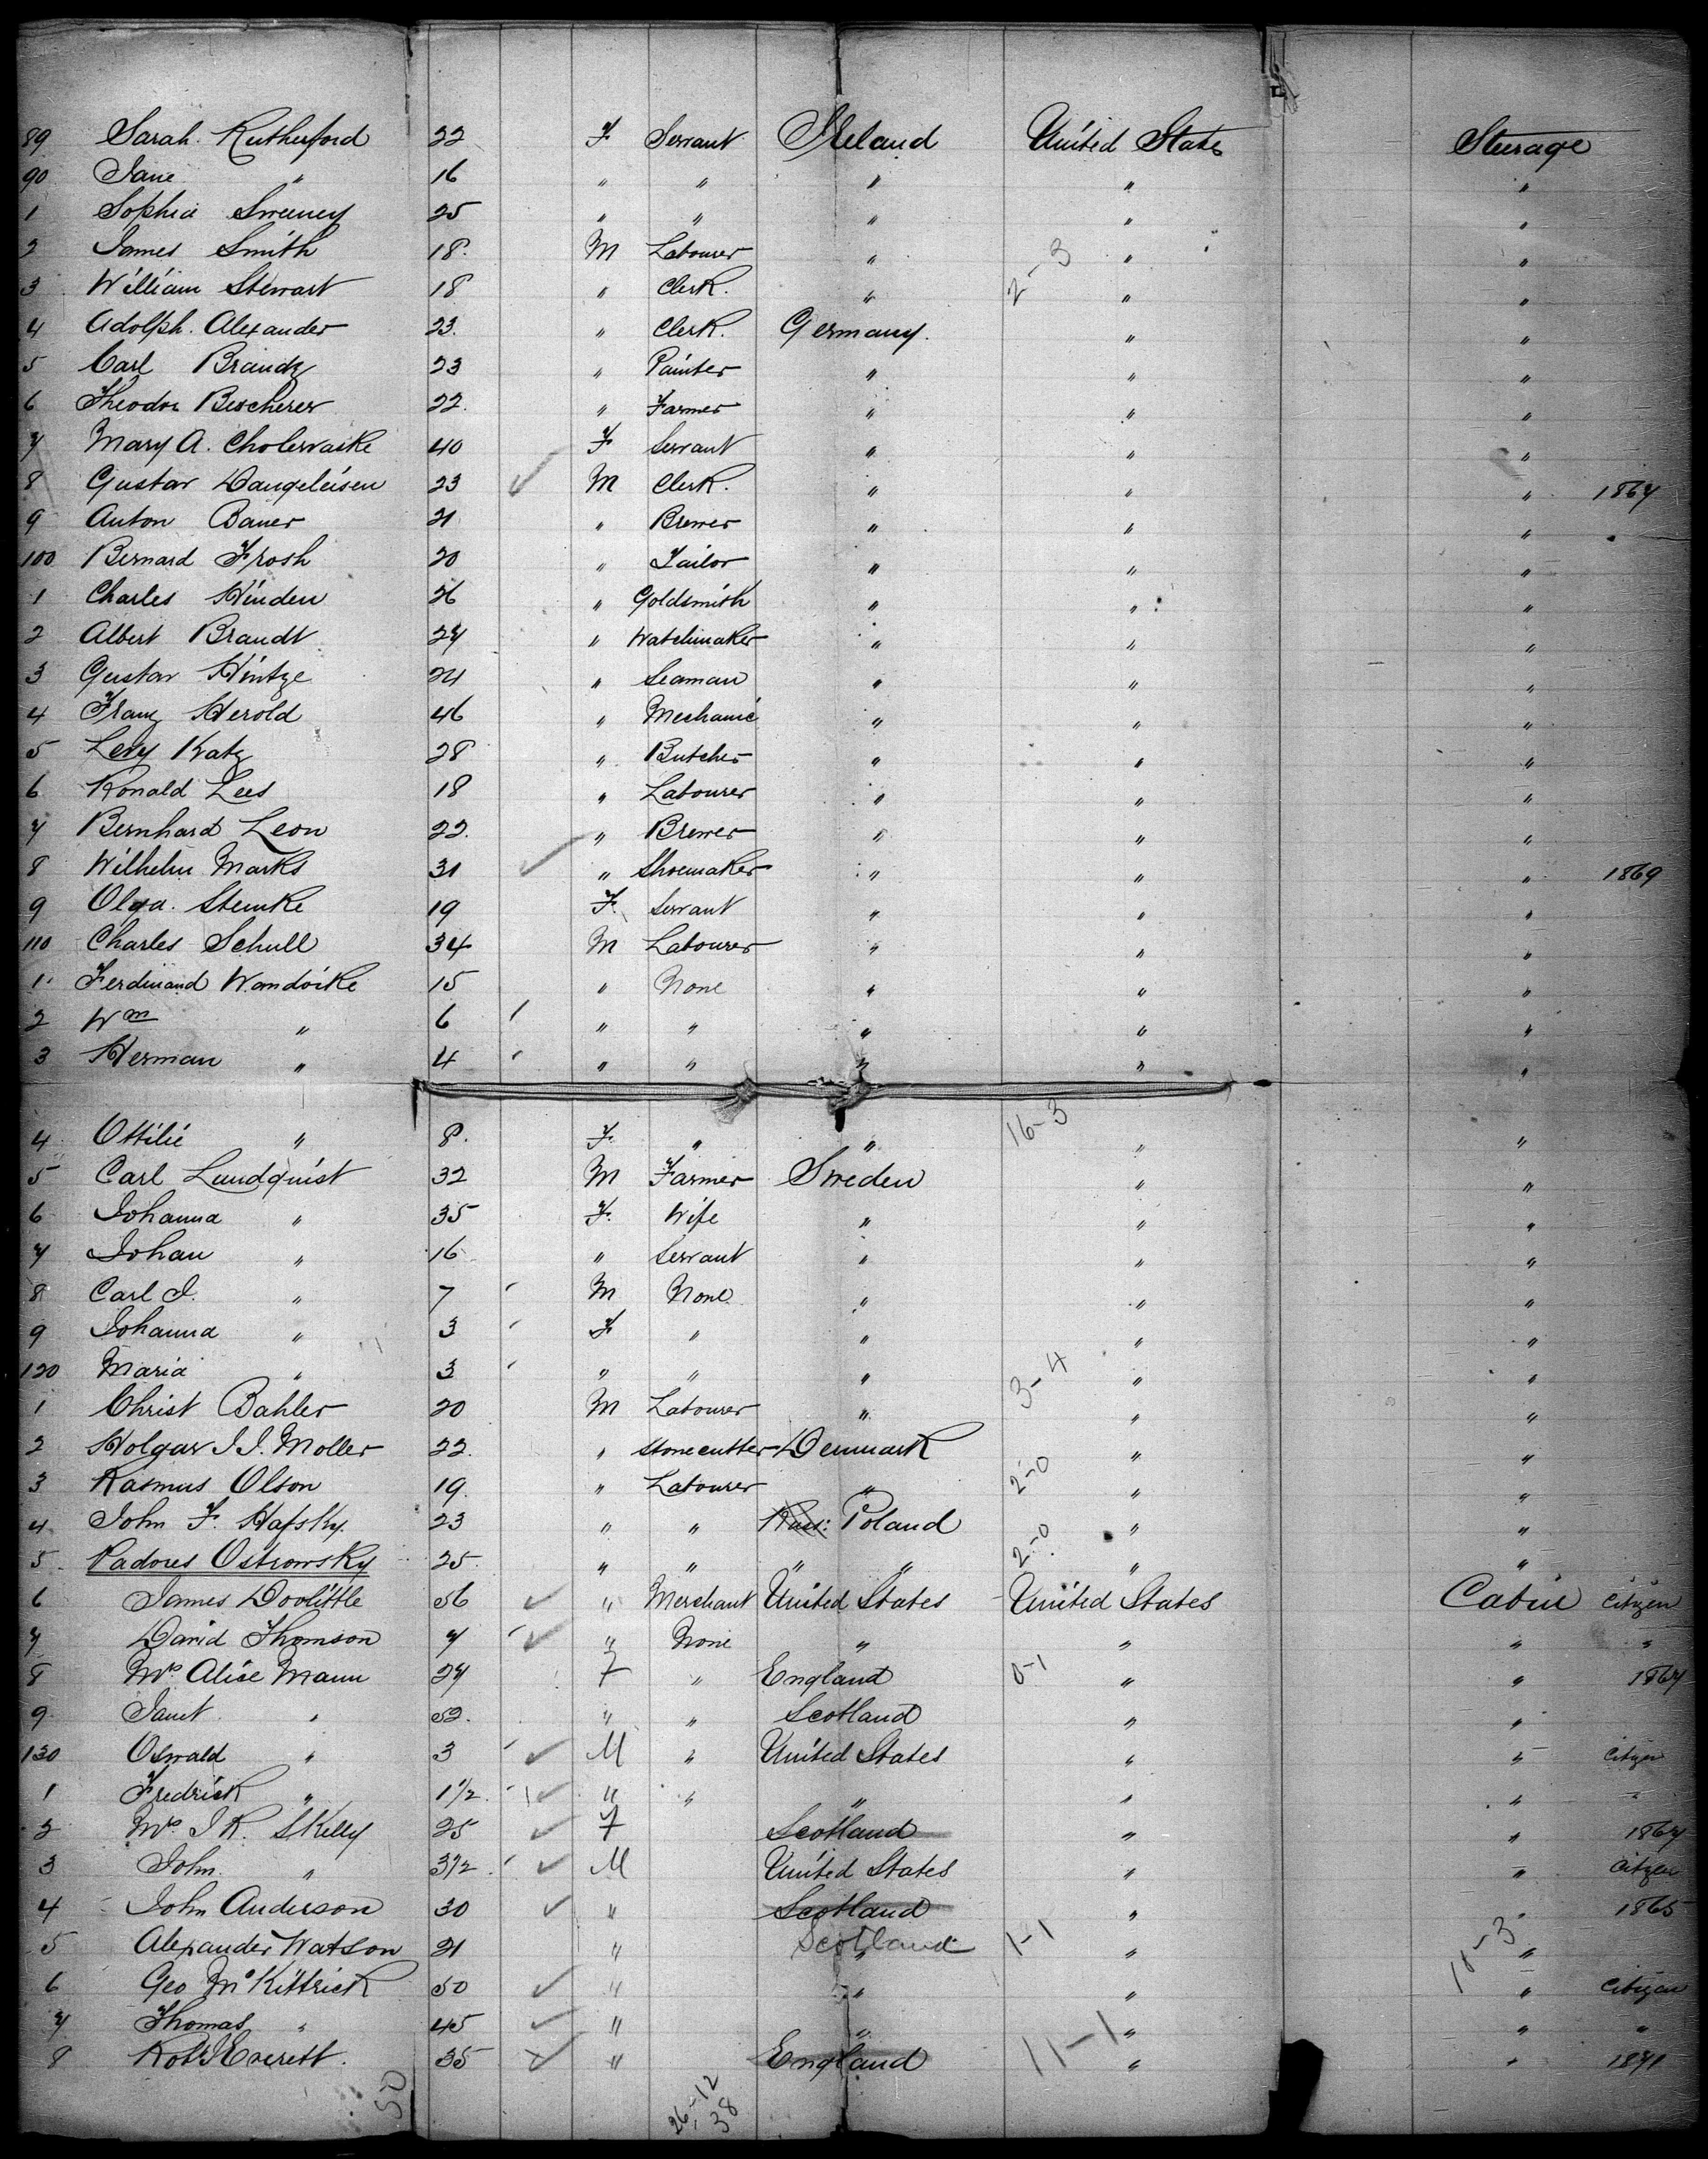 89 Sarah Rutherford 22 F Servant Ireland United States Steerage
90 Jane " 16 " " " " "
1 Sophia Sweeney 25 " " " " "
2 James Smith 18 M Labourer " 2-3 " "
3 William Stewart 18 " Clerk. " " "
4 Adolph. Alexander 23. " Clerk. Germany. " "
5 Carl Brandz 23 " Painter " " "
6 Theodor Bescherer 22. " Farmer " " "
7 Mary A. Cholervaske 40 F Servant " " "
8 Gustav Dangeleisen 23 ✓ M Clerk. " " " 1867
9 Anton Bauer 21 " Brewer " " "
100 Bernard Frosh 20 " Tailor " " "
1 Charles Hinden 26 " Goldsmith " " "
2 Albert Brandt 27 " Watchmaker " " "
3 Gustav Hintze 24 " Seaman " " "
4 Franz Herold 46 " Mechanic " " "
5 Levy Katz 28 " Butcher " " "
6 Ronald Lees 18 " Labourer " " "
7 Bernhard Leon 22. " Brewer " " "
8 Wilhelm Marks 31 ✓ " Shoemaker " " " 1869
9 Olga. Stemke 19 F. Servant " " "
110 Charles Schull 34 M Labourer " " "
1 Ferdinand Wandoike 15 " None " " "
2 Wm " 6 " " " " "
3 Herman " 4 " " " " "
4 Ottilie " 8. F. " " 16-3 " "
5 Carl Lundquist 32 M Farmer Sweden " "
6 Johanna " 35 F. Wife " " "
7 Johan " 16 " Servant " " "
8 Carl J. " 7 M None " " "
9 Johanna " 3 F " " " "
120 Maria " 3 " " " 3-4 " "
1 Christ Bahler 20 M Labourer " " "
2 Holgar J. J. Moller 22. " Stonecutter Denmark " "
3 Rasmus Olson 19. " Labourer " 2-0 " "
4 John F. Hafsky. 23 " " Russ: Poland " "
5 Padores Ostrowsky 25. " " " " 2-0 " "
6 James Doolittle 56 ✓ " Merchant United States United States Cabin Citizen
7 David Thomson 7 ✓ " None " " " "
8 Mrs Alice Mann 27 F " England 0-1 " " 1867
9 Janet " 52. " " Scotland " "
130 Oswald " 3 ✓ M " United States " " Citizen
1 Fredrick " 1 1/2. ✓ " " " " " "
2 Mrs J. R. Skelly 25 ✓ F Scotland " " 1867
3 John. " 3 1/2 ✓ M United States " " Citizen
4 John Anderson 30 ✓ " Scotland " " 1865
5 Alexander Watson 21 " Scotland 1-1 " 18-3 "
6 Geo McKittrick 50 ✓ " " " " Citizen
7 Thomas " 45 ✓ " " " " "
8 Robt Everett. 35 ✓ " England 11-1 " " 1871
50 26-12
38